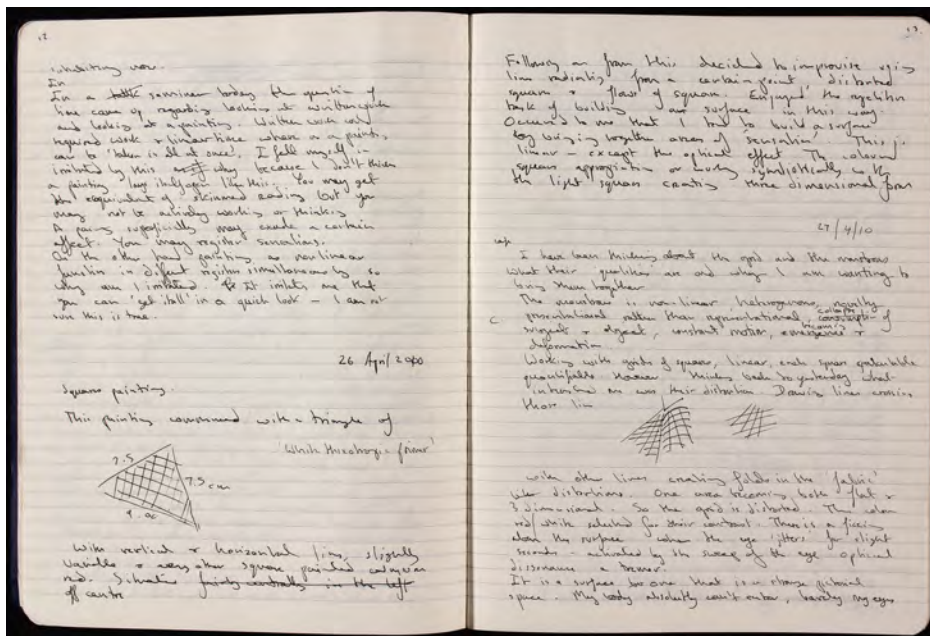 12
inhabiting now.
In
In a talk seminar today the question of
time came up regarding looking at written work
and looking at a painting. Written work only
required work & linear time where as a painting
can be 'taken in all at once'. I felt myself
irritated by this why because I don't think
a painting lays itself open like this. You may get
the equivalent of skimmed reading but you
may not be actively working or thinking
A painting superficially may exude a certain
affect. You may register sensations.
On the other hand painting is non linear
function in different registers simultaneously so
why am I irritated. It irritates me that
you can 'get it all' in a quick look – I am not
sure this is true.
26 April 2010
Square painting.
This painting commenced with a triangle of
'White thixotropic primer'
7.5
7.5 cm
9.
With vertical & horizontal lines, slightly
variable & every other square painted cadmium
red. Situated fairly centrally in the left
off centre
13.
Following on from this decided to improvise using
lines radiating from a certain point, distorted
square & flow of square. Enjoyed the repetitive
task of building our surface in this way.
Occurred to me that I tend to build a surface
by bringing together areas of sensation. This is
linear – except the optical effect. The coloured
square appropriation or working symbiotically with
the light square creating three dimensional form
27/4/10
I have been thinking about the grid and the
what their qualities are and why I am wanting to
bring them together
The is non-linear, heterogenous, novelty
presentational rather than representational, collapse of
subject & object, constant motion, emergence &
deformation
Working with grids of square, linear, each square
quantifiable However thinking back to yesterday what
interested me was their distortion. Drawing lines crossing
their lin
with other lines creating folds in the 'fabric'
like distortions. One area becoming both flat &
3 dimensional. So the grid is distorted. The colour
red/white selected for their contrast. There is a
along the surface where the eye 'jitters' for slight
seconds – activated by the sweep of the eye optical
dissonance a tremor.
It is a surface but one that is a strange pictorial
space. My body absolutely can't enter, barely my eyes